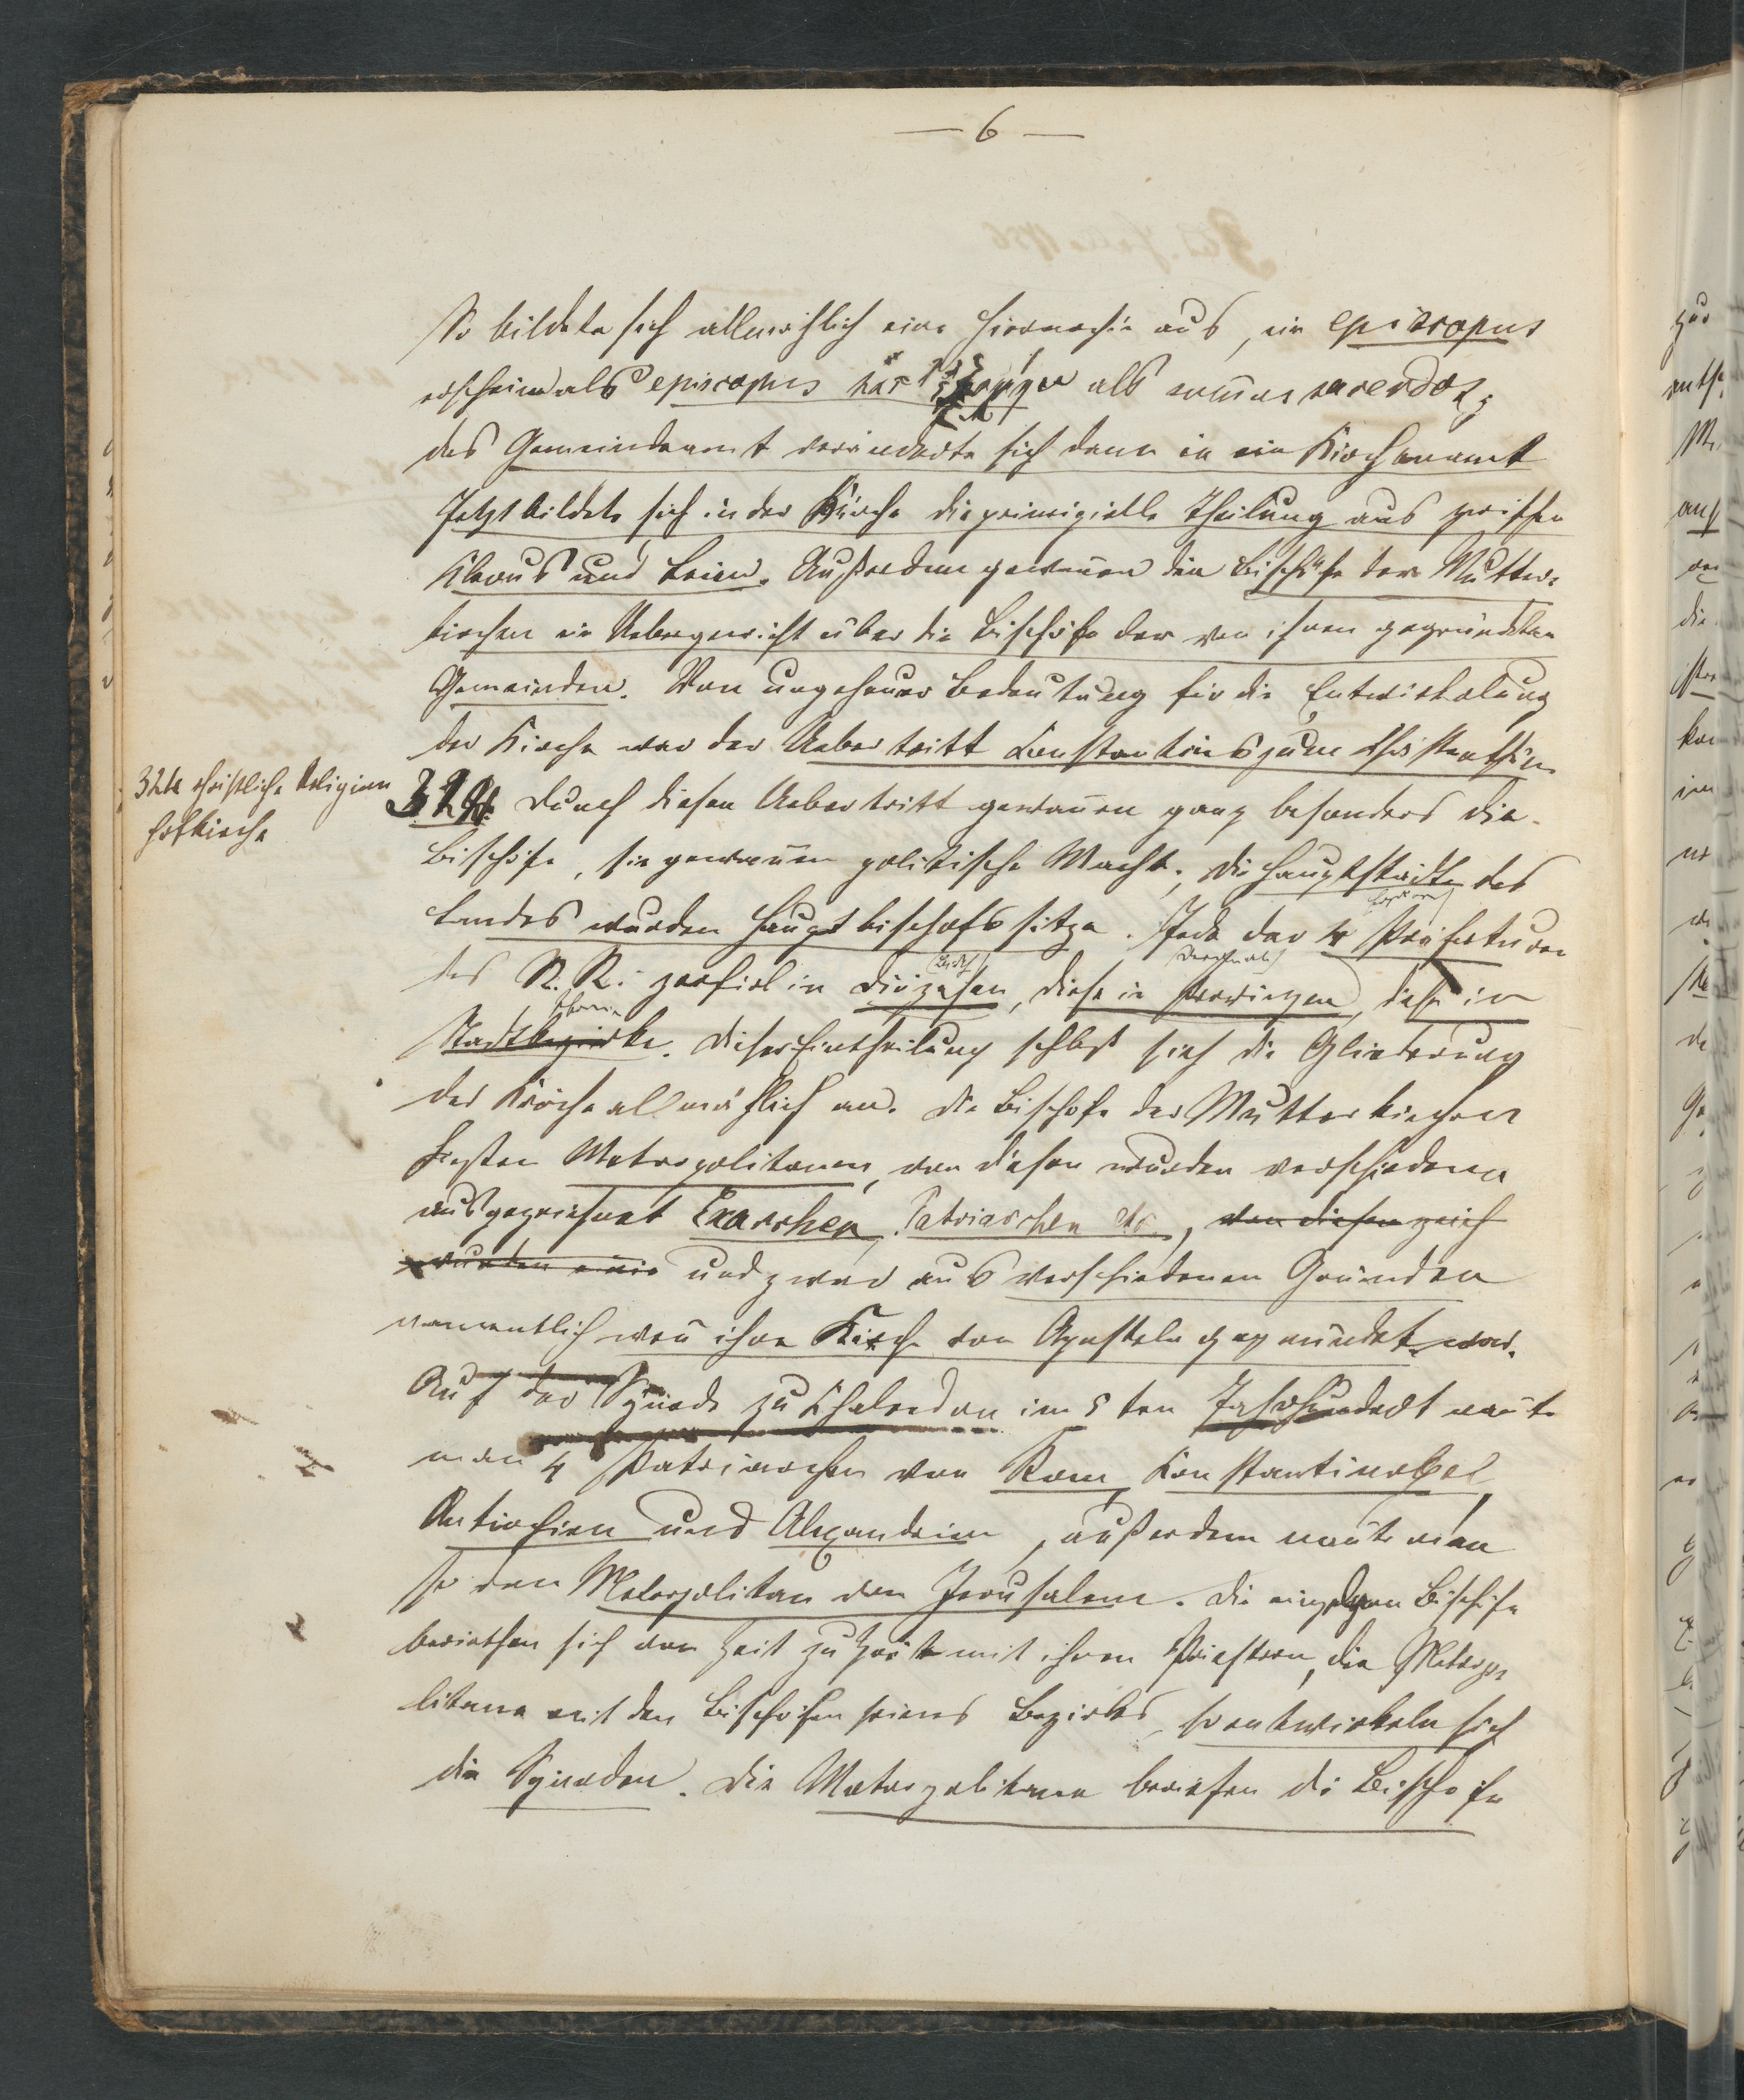 — 6 —
So bildete sich allmählich eine Hierarchie aus, ein episcopus
erscheint als episcopus als summus sacerdos;
das Gemeindeamt veränderte sich dann in ein Kirchenamt
Jetzt bildete sich in der Kirche die principielle Theilung aus zwischen
Klerus und Laien. Außerdem gewannen die Bischöfe der Mutter-
kirchen ein Uebergewicht über die Bischöfe der von ihnen gegründeten
Gemeinden. Von ungeheurer Bedeutung für die Entwickelung
der Kirche war der Uebertritt Constantins zum Christenthum
324 christliche Religion
Hofkirche
324. Durch diesen Uebertritt gewannen ganz besonders die
Bischöfe, sie gewannen politische Macht. Die Hauptstädte des
Landes wurden Hauptbischofssitze. Jede der 4 Präfekturen
des R. R. zerfiel in Diözesen, diese in Provinzen, diese in
Stadtbezirke. Dieser Eintheilung schloß sich die Gliederung
der Kirche allmählich an. Die Bischöfe der Mutterkirchen
hießen Metropolitanen, von diesen wurden verschiedene
ausgezeichnet Exarchen, Patriarchen etc., von diesen zeich
wurden eine und zwar aus verschiedenen Gründen
namentlich wenn ihre Kirche von Aposteln gegründet war.
Auf der Synode zu Chalcedon im 5ten Jahrhundert nannte
man 4 Patriarchen von Rom, Konstantinopel,
Antiochien und Alexandrien, außerdem nannte man
so den Metropolitan von Jerusalem. Die einzelnen Bischöfe
beriethen sich von Zeit zu Zeit mit ihren Priestern, die Metropo-
litane mit den Bischöfen seines Bezirkes, so entwickeln sich
die Synoden. Die Metropolitane beriefen die Bischöfe